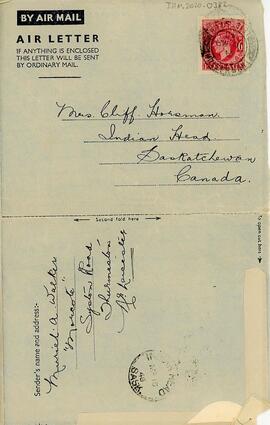 BY AIR MAIL
AIR LETTER
IF ANYTHING IS ENCLOSED
THIS LETTER WILL BE SENT
BY ORDINARY MAIL.
Mrs. Cliff Horsman.
Indian Head.
Saskatchewan
Canada.
Second fold here
To open cut here
Sender's name and address:-
Muriel A. Walker
"Morcote"
Syston Road
Thurmaston
Leicester
HEAD
SASK